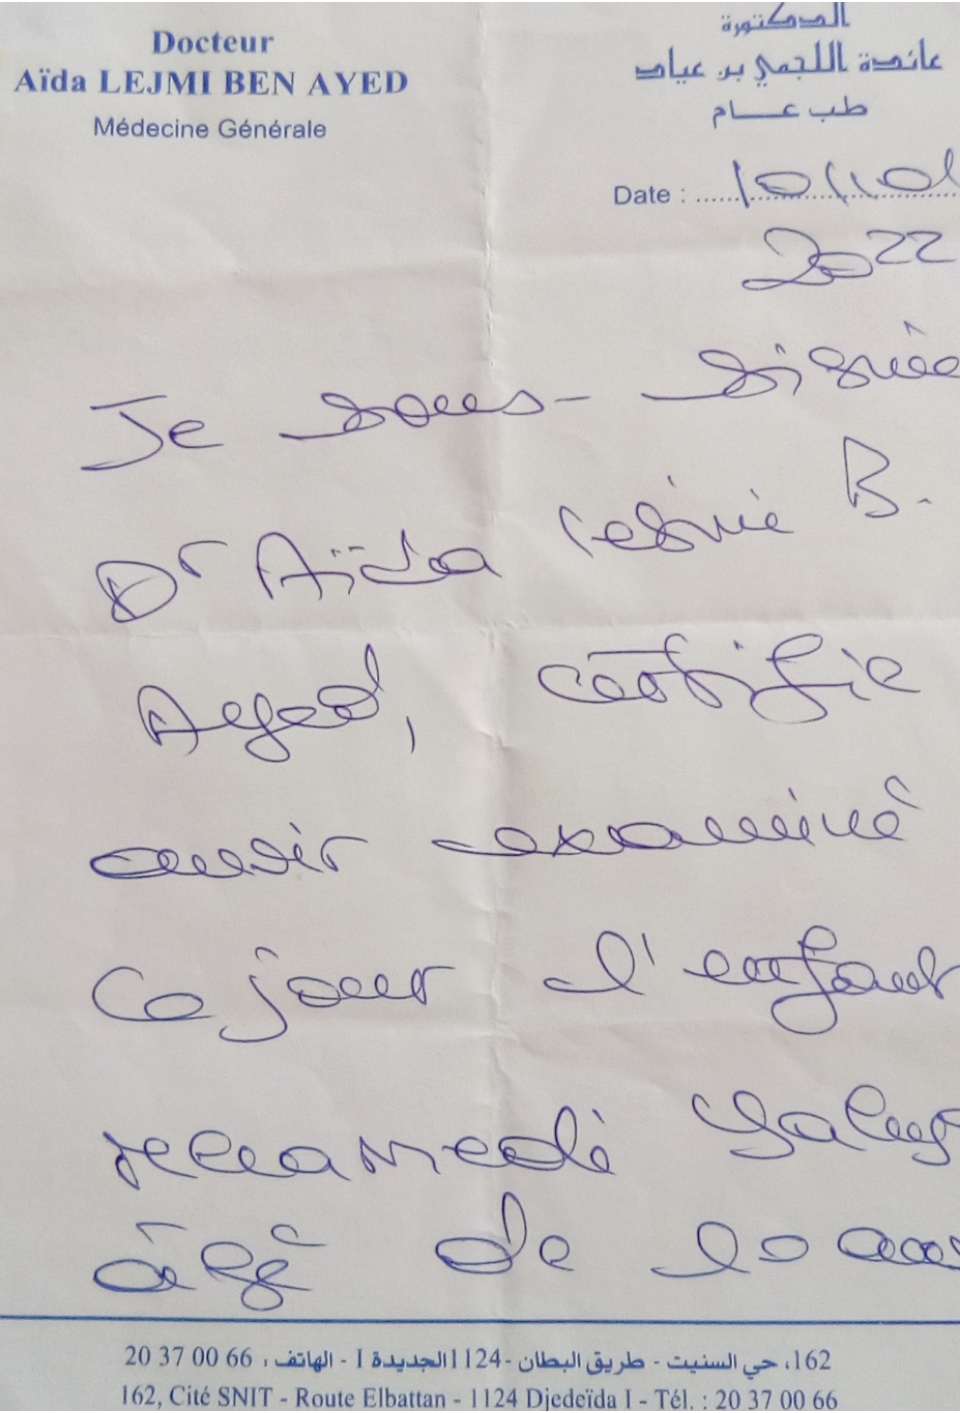 Docteur
Aïda LEJMI BEN AYED
Médecine Générale
الدكتورة
عائدة اللجمي بن عياد
طب عام
Date : 10/10/
2022
Je sous-signée
Dr Aïda Lejmi B.
Ayed, certifie
avoir examiné
ce jour l'enfant
âgé de 10 ans
162، حي السنيت - طريق البطان -1124 الجديدة 1 - الهاتف : 66 00 37 20
162, Cité SNIT - Route Elbattan - 1124 Djedeïda I - Tél. : 20 37 00 66